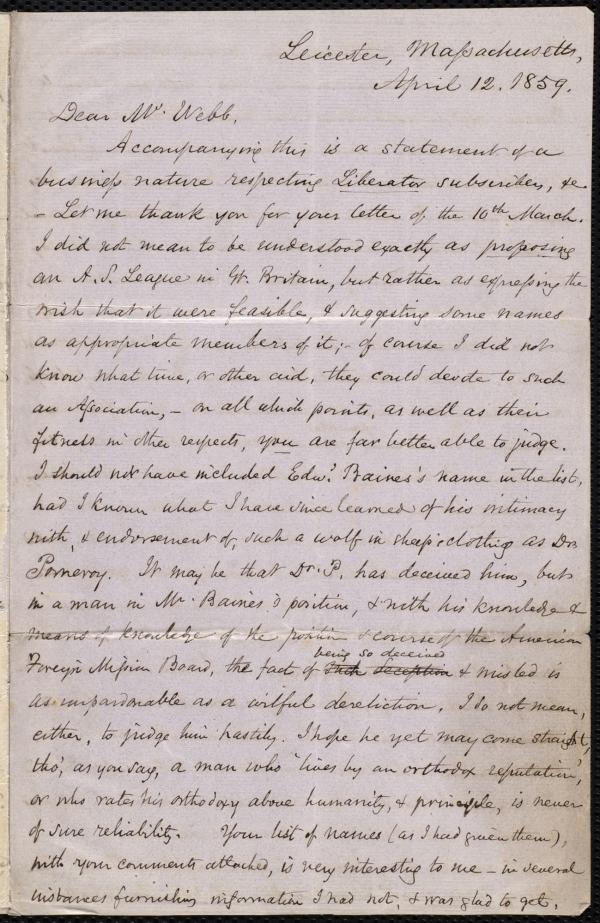 Leicester, Massachusetts,
April 12. 1859.
Dear Mr. Webb,
Accompanying this is a statement of a
business nature respecting Liberator subscribers, &c
- Let me thank you for your letter of the 10th March.
I did not mean to be understood exactly as proposing
an A. S. League in Gt. Britain, but rather as expressing the
wish that it were feasible, & suggesting some names
as appropriate members of it; - of course I did not
know what time, or other aid, they could devote to such
an Association, - on all which points, as well as their
fitness in other respects, you are far better able to judge.
I should not have included Edwd. Baines's name in the list,
had I known what I have since learned of his intimacy
with, & endorsement of, such a wolf in sheep's clothing as Dr.
Pomeroy. It may be that Dr. P. has deceived him, but
in a man in Mr. Baines's position, & with his knowledge &
means of knowledge of the position & course of the American
being so deceived
Foreign Mission Board, the fact of such deception & misled is
as unpardonable as a wilful dereliction. I do not mean,
either, to judge him hastily. I hope he yet may come straight,
tho', as you say, a man who "lives by an orthodox reputation",
or who rates his orthodoxy above humanity, & principle, is never
of sure reliability. Your list of names (as I had given them),
with your comments attached, is very interesting to me - in several
instances furnishing information I had not, & was glad to get.